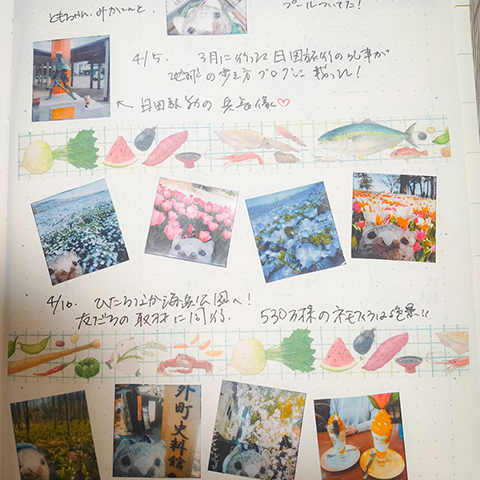 ともちゃん、みかこんと、
プールついてた!
4/5. 3月に行った日田旅行の記事が
地球の歩き方ブログに載った!
← 日田駅前の兵長像♡
4/10. ひたちなか海浜公園へ!
友だちの取材に同行. 530万株のネモフィラは絶景!!
外町史料館